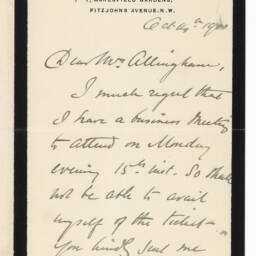 MARESFIELD GARDENS,
FITZJOHNS AVENUE, N.W.
Oct 4th 1900
Dear Mrs Allingham,
I much regret that
I have a business meeting
to attend on Monday
evening 15th inst. So shall
not be able to avail
myself of the ticket
You kindly sent me